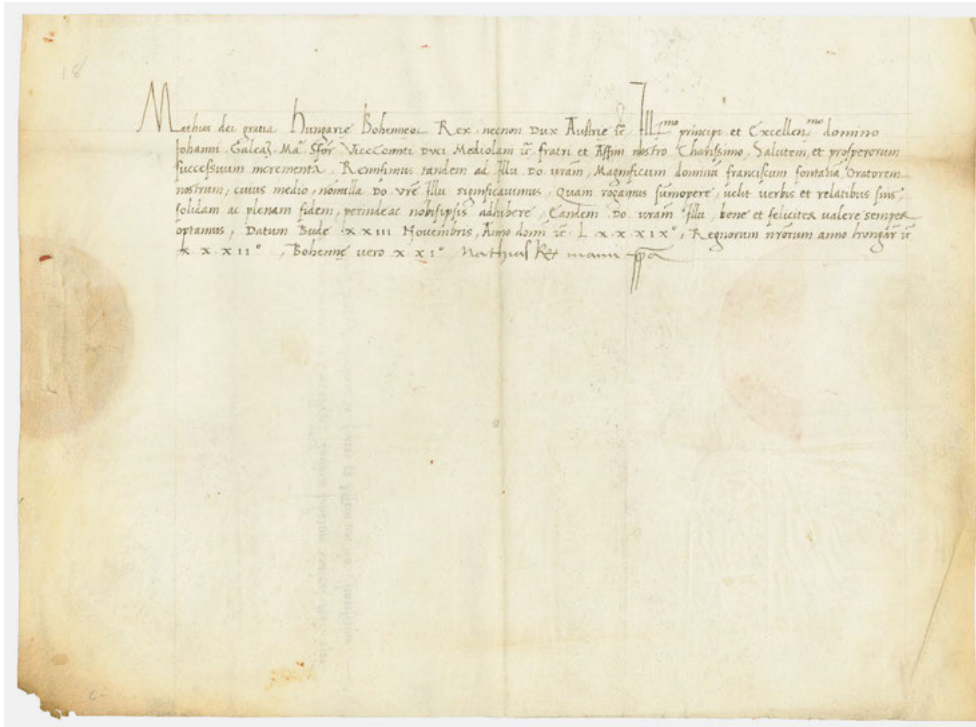 18
Mathias dei gratia Hungarie Bohemeqʒ Rex necnon Dux Austrie ꝛc̄ Ill.mo principi et Excellen.mo domino
Johanni Galeaʒ Ma. Sfor. ViceComiti Duci Mediolani ꝛc̄ fratri et Affini nostro Charissimo, Salutem, et prosperorum
successuum incrementa. Remisimus tandem ad Illu. Do. vr̄am, Magnificum dominū franciscum fontanā, Oratorem
nostrum, cuius medio, nonnulla Do. vrē Illu. significavimus, Quam rogamus sūmopere, velit verbis et relatibus suis,
solidam ac plenam fidem, perinde ac nobisipsis adhibere, Eandem Do. vr̄am Illu. bene et feliciter valere semper
optamus, Datum Bude XXIII Novembris, Anno domī ꝛc̄ L X X X IX°, Regnorum nr̄orum anno hungar̄ ꝛc̄
X X X II°, Bohemie vero X X I°, Mathias Rex manu ꝓp̄a